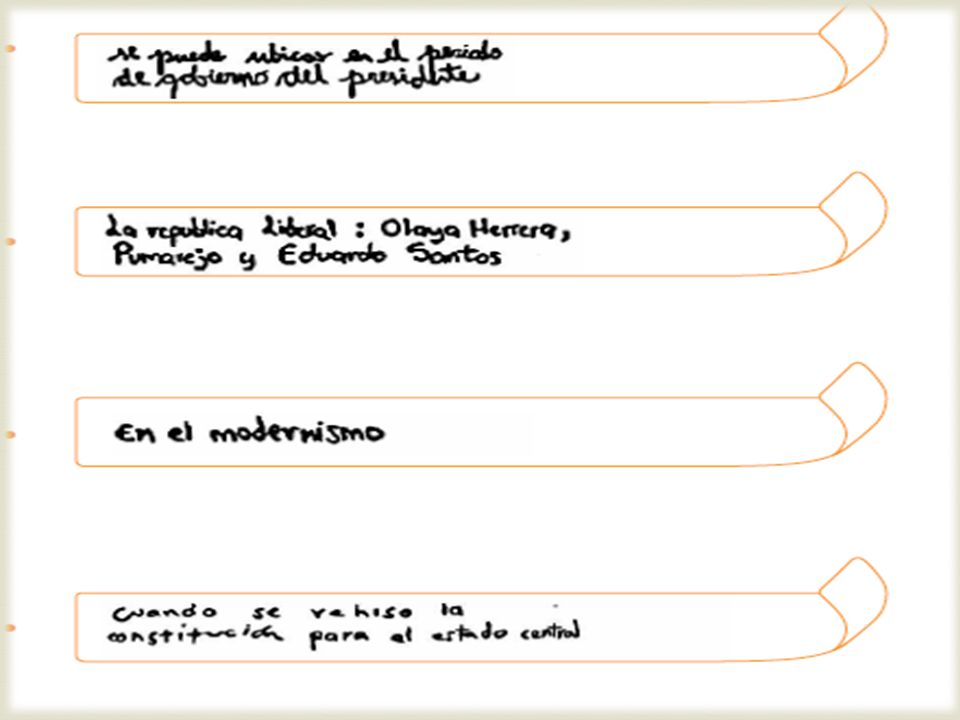 se puede ubicar en el periodo
de gobierno del presidente
La republica liberal : Olaya Herrera,
Pumarejo y Eduardo Santos
En el modernismo
Cuando se rehiso la
constitución para el estado central